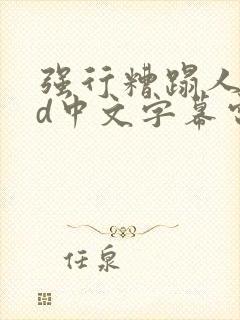 强行糟蹋人
d中文字幕
任泉